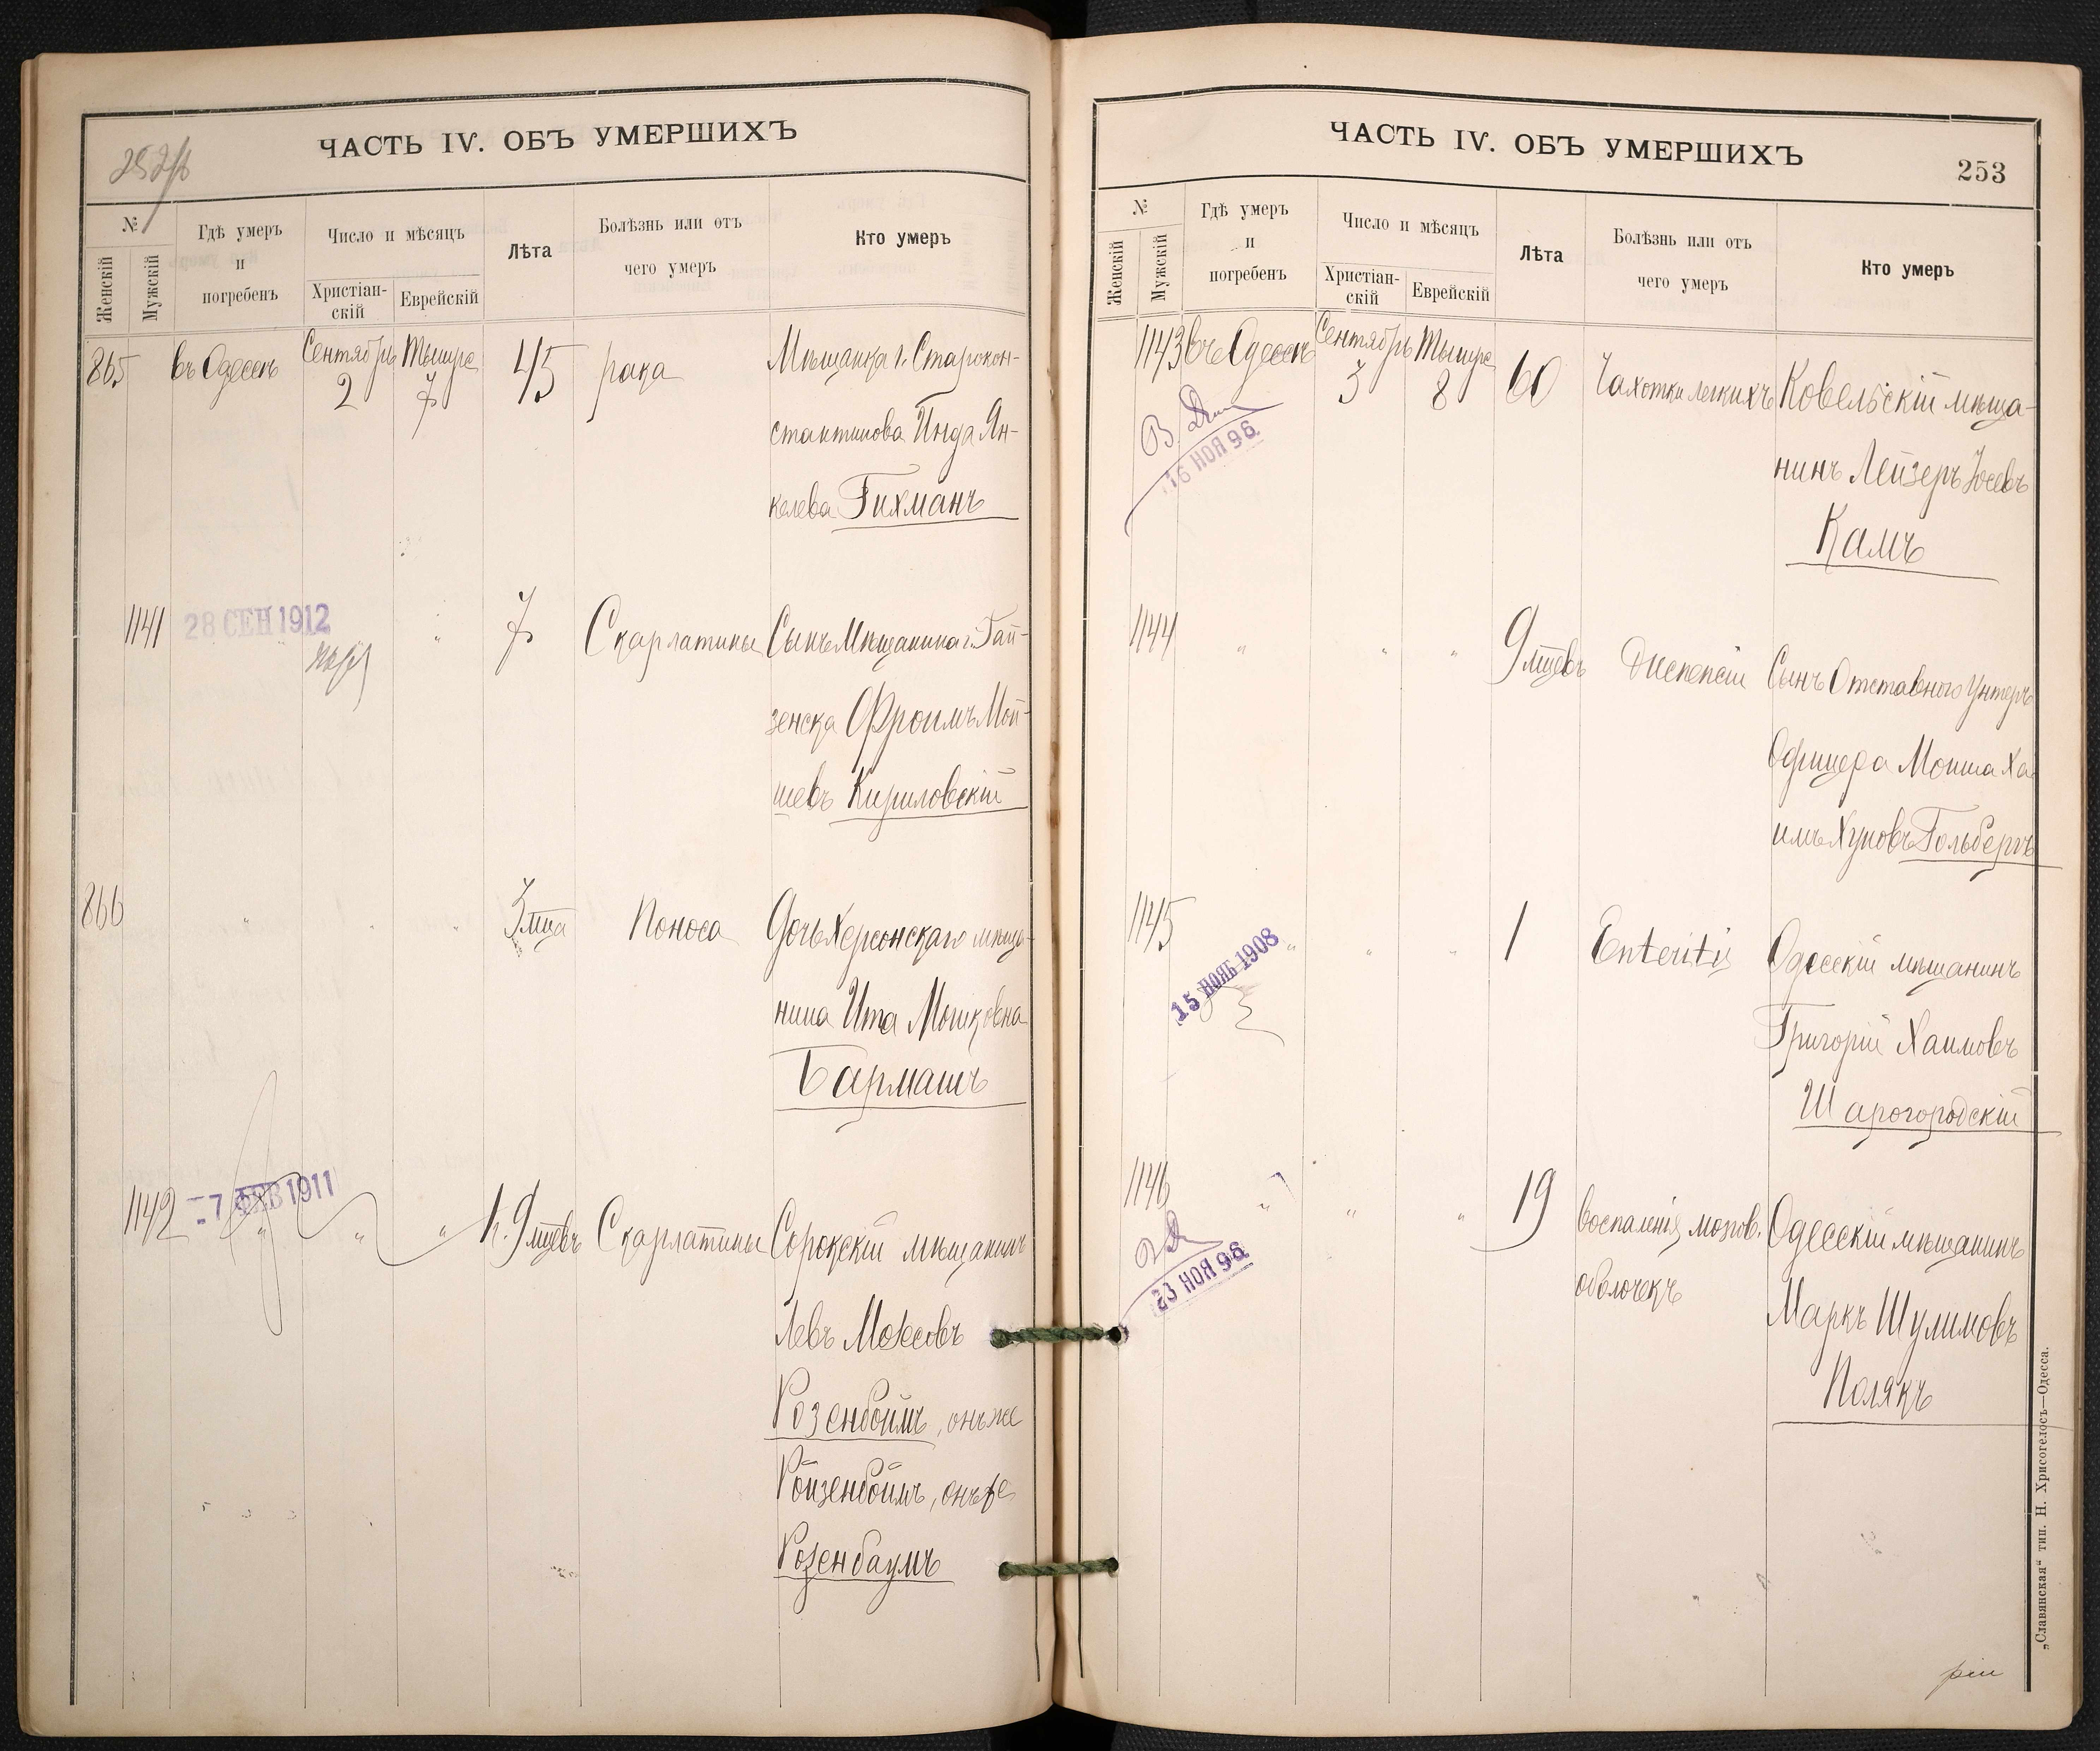 252/б
ЧАСТЬ IV. ОБЪ УМЕРШИХЪ
№
Женскій
Мужскій
Гдѣ умеръ
и
погребенъ
Число и мѣсяцъ
Христіан-
скій
Еврейскій
Лѣта
Болѣзнь или отъ
чего умеръ
Кто умеръ
865
въ Одессѣ
Сентябрь
2
Тышре
7
45
рака
Мѣщанка г. Старокон-
стантинова Инда Ян-
келева Гихманъ
1141
28 СЕН 1912
"
7
Скарлатины
Сынъ Мѣщанина г. Гай-
зенска Фроимъ Мой-
шевъ Кириловскій
866
"
"
"
3 мца
Поноса
Дочь Херсонскаго мѣща-
нина Ита Мошковна
Бармашъ
1142
-7 ФЕВ 1911
"
"
"
1 г. 9 мцевъ
Скарлатины
Сорокскій мѣщанинъ
Левъ Мойсеевъ
Розенбоймъ, онъ же
Ройзенбоймъ, онъ же
Розенбаумъ
ЧАСТЬ IV. ОБЪ УМЕРШИХЪ
253
№
Женскій
Мужскій
Гдѣ умеръ
и
погребенъ
Число и мѣсяцъ
Христіан-
скій
Еврейскій
Лѣта
Болѣзнь или отъ
чего умеръ
Кто умеръ
1143
въ Одессѣ
Сентябрь
3
Тышре
8
60
Чахотки легкихъ
Ковельскій мѣща-
нинъ Лейзеръ Іосевъ
Камъ
16 НОЯ 96
1144
"
"
"
9 мцевъ
Диспепсіи
Сынъ Отставного Унтеръ
Офицера Мойша Ха-
имъ Хуновъ Гольбергъ
1145
15 НОЯБ 1908
"
"
"
1
Enteritis
Одесскій мѣщанинъ
Григорій Хаимовъ
Шарогородскій
1146
23 НОЯ 96
"
"
"
19
воспаленія мозгов.
оболочекъ
Одесскій мѣщанинъ
Маркъ Шулимовъ
Полякъ
„Славянская“ тип. Н. Хрисогелосъ—Одесса.